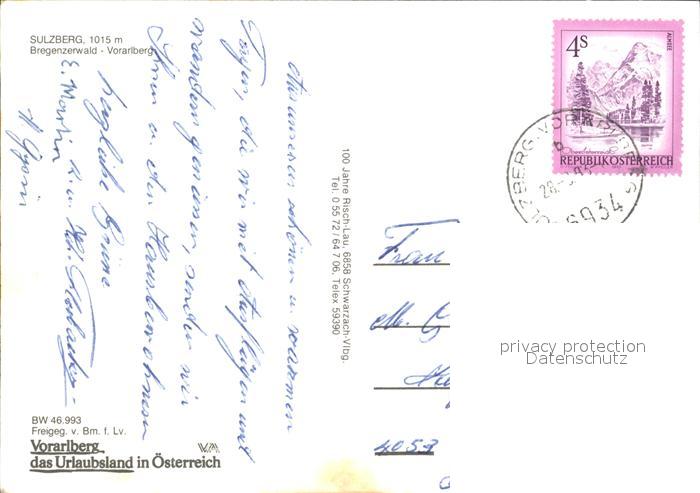 SULZBERG, 1015 m
Bregenzerwald - Vorarlberg
An unseren schönen u. warmen
Tagen, die wir mit Ausflügen und
Wandern geniessen, senden wir
Ihnen u. den Hausbewohnern
herzliche Grüsse
E. Martin u.
100 Jahre Risch-Lau, 6858 Schwarzach-Vlbg.
Tel. 0 55 72 / 64 7 06, Telex 59390
4S
ALMSEE
REPUBLIK ÖSTERREICH
6934
Frau
M. G
4053
privacy protection
Datenschutz
BW 46.993
Freigeg. v. Bm. f. Lv.
Vorarlberg
das Urlaubsland in Österreich